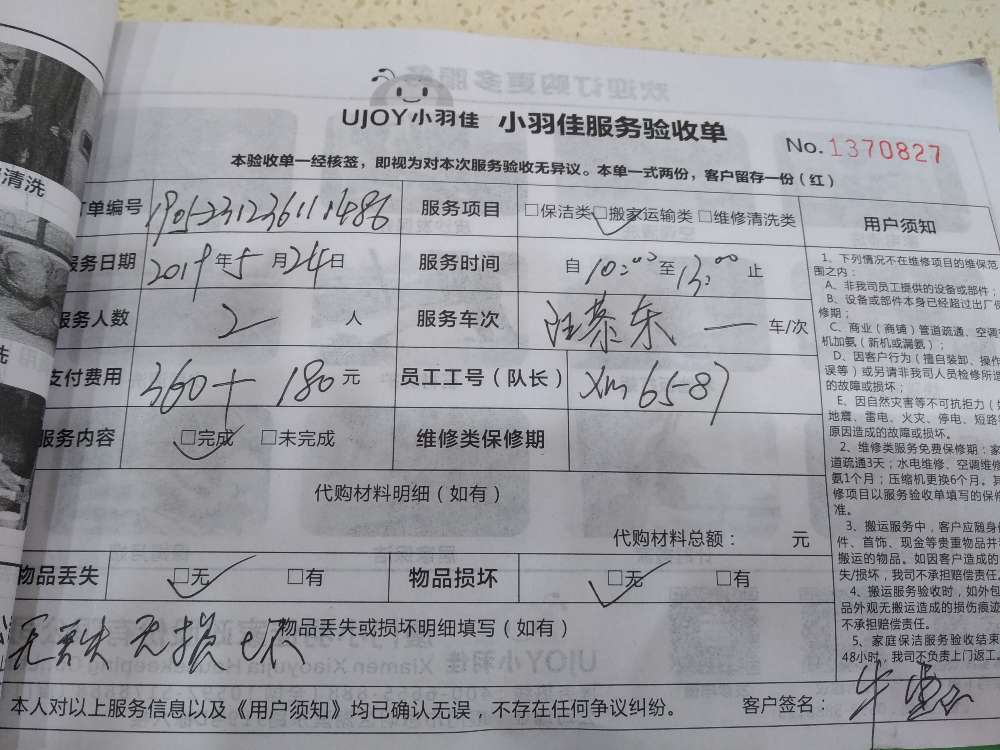 UJOY小羽佳 小羽佳服务验收单
No.1370827
本验收单一经核签，即视为对本次服务验收无异议。本单一式两份，客户留存一份（红）
清洗
订单编号 服务项目 □保洁类 □搬家运输类 □维修清洗类
服务日期 2019年5月24日 服务时间 自10:00至13:00止
服务人数 2人 服务车次 汪慕东 一 车/次
支付费用 360+180元 员工工号（队长） Xm6587
服务内容 □完成 □未完成 维修类保修期
代购材料明细（如有）
代购材料总额： 元
物品丢失 □无 □有 物品损坏 □无 □有
物品丢失或损坏明细填写（如有）
无丢失 无损坏
本人对以上服务信息以及《用户须知》均已确认无误，不存在任何争议纠纷。 客户签名：
用户须知
1、下列情况不在维修项目的维保范
围之内：
A、非我司员工提供的设备或部件；
B、设备或部件本身已经超过出厂保
修期；
C、商业（商铺）管道疏通、空调
机加氨（新机或漏氨）；
D、因客户行为（擅自装卸、操作
误等）或另请非我司人员检修所造
的故障或损坏；
E、因自然灾害等不可抗拒力（如
地震、雷电、火灾、停电、短路等
原因造成的故障或损坏。
2、维修类服务免费保修期：家
道疏通3天；水电维修、空调维修
氨1个月；压缩机更换6个月。其
修项目以服务验收单填写的保修
准。
3、搬运服务中，客户应随身
件、首饰、现金等贵重物品并
搬运的物品。如因客户造成的
失/损坏，我司不承担赔偿责任。
4、搬运服务验收时，如外包
品外观无搬运造成的损伤痕迹
不承担赔偿责任。
5、家庭保洁服务验收结束
48小时，我司不负责上门返工。